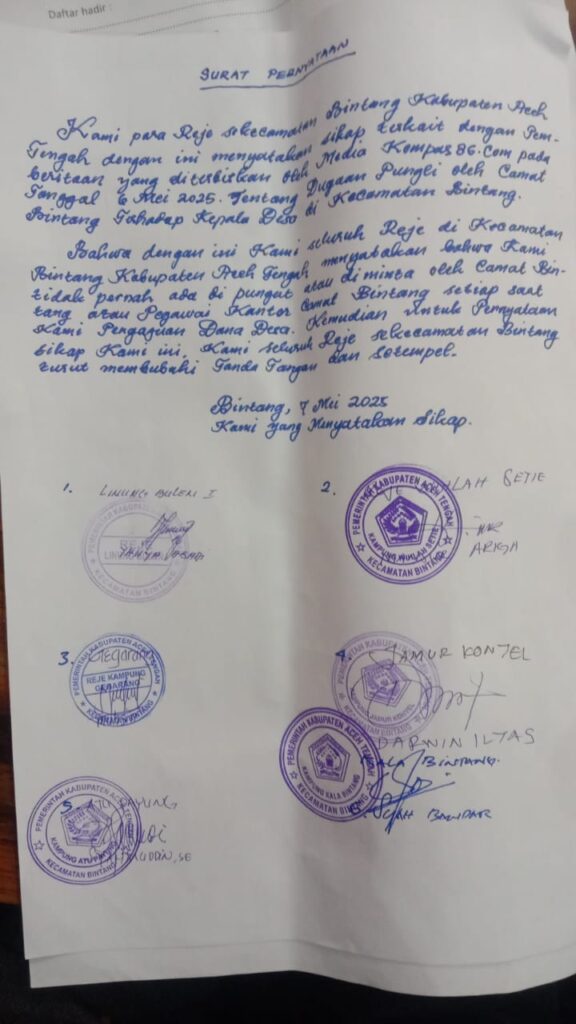 Daftar hadir :
SURAT PERNYATAAN
Kami para Reje sekecamatan Bintang Kabupaten Aceh
Tengah dengan ini menyatakan sikap terkait dengan Pem-
beritaan yang diterbitkan oleh Media Kompas 86.com pada
Tanggal 6 Mei 2025. Tentang Dugaan Pungli oleh Camat
Bintang Tahadap Kepala Desa di Kecamatan Bintang.
Bahwa dengan ini Kami seluruh Reje di Kecamatan
Bintang Kabupaten Aceh Tengah menyatakan bahwa Kami
tidak pernah ada di pungut atau di minta oleh Camat Bin-
tang atau Pegawai Kantor Camat Bintang setiap saat
Kami Pengajuan Dana Desa. Kemudian untuk Pernyataan
sikap Kami ini, Kami seluruh Reje sekecamatan Bintang
turut membubuhi Tanda Tangan dan Setempel.-
Bintang, 7 Mei 2025
Kami yang Menyatakan Sikap.
1. LINUNG BULEN I
PEMERINTAH KABUPATEN
REJE
KECAMATAN BINTANG
2.
PEMERINTAH KABUPATEN ACEH TENGAH
KAMPUNG WIHLAH SETIE
KECAMATAN BINTANG
SETIE
ARIGA
3. Gegarang
PEMERINTAH KABUPATEN ACEH TENGAH
REJE KAMPUNG
GEGARANG
KECAMATAN BINTANG
4. JAMUR KONJEL
KAMPUNG JAMUR KONJEL
KECAMATAN BINTANG
DARWIN ILYAS
KALA BINTANG.
PEMERINTAH KABUPATEN ACEH TENGAH
KAMPUNG KALA BINTANG
KECAMATAN BINTANG
BANDAR
5.
PEMERINTAH KABUPATEN ACEH
KAMPUNG ATU PAYUNG
KECAMATAN BINTANG